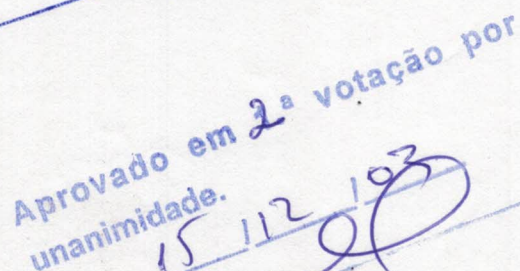 Aprovado em 2ª votação por
unanimidade.
15 / 12 / 03